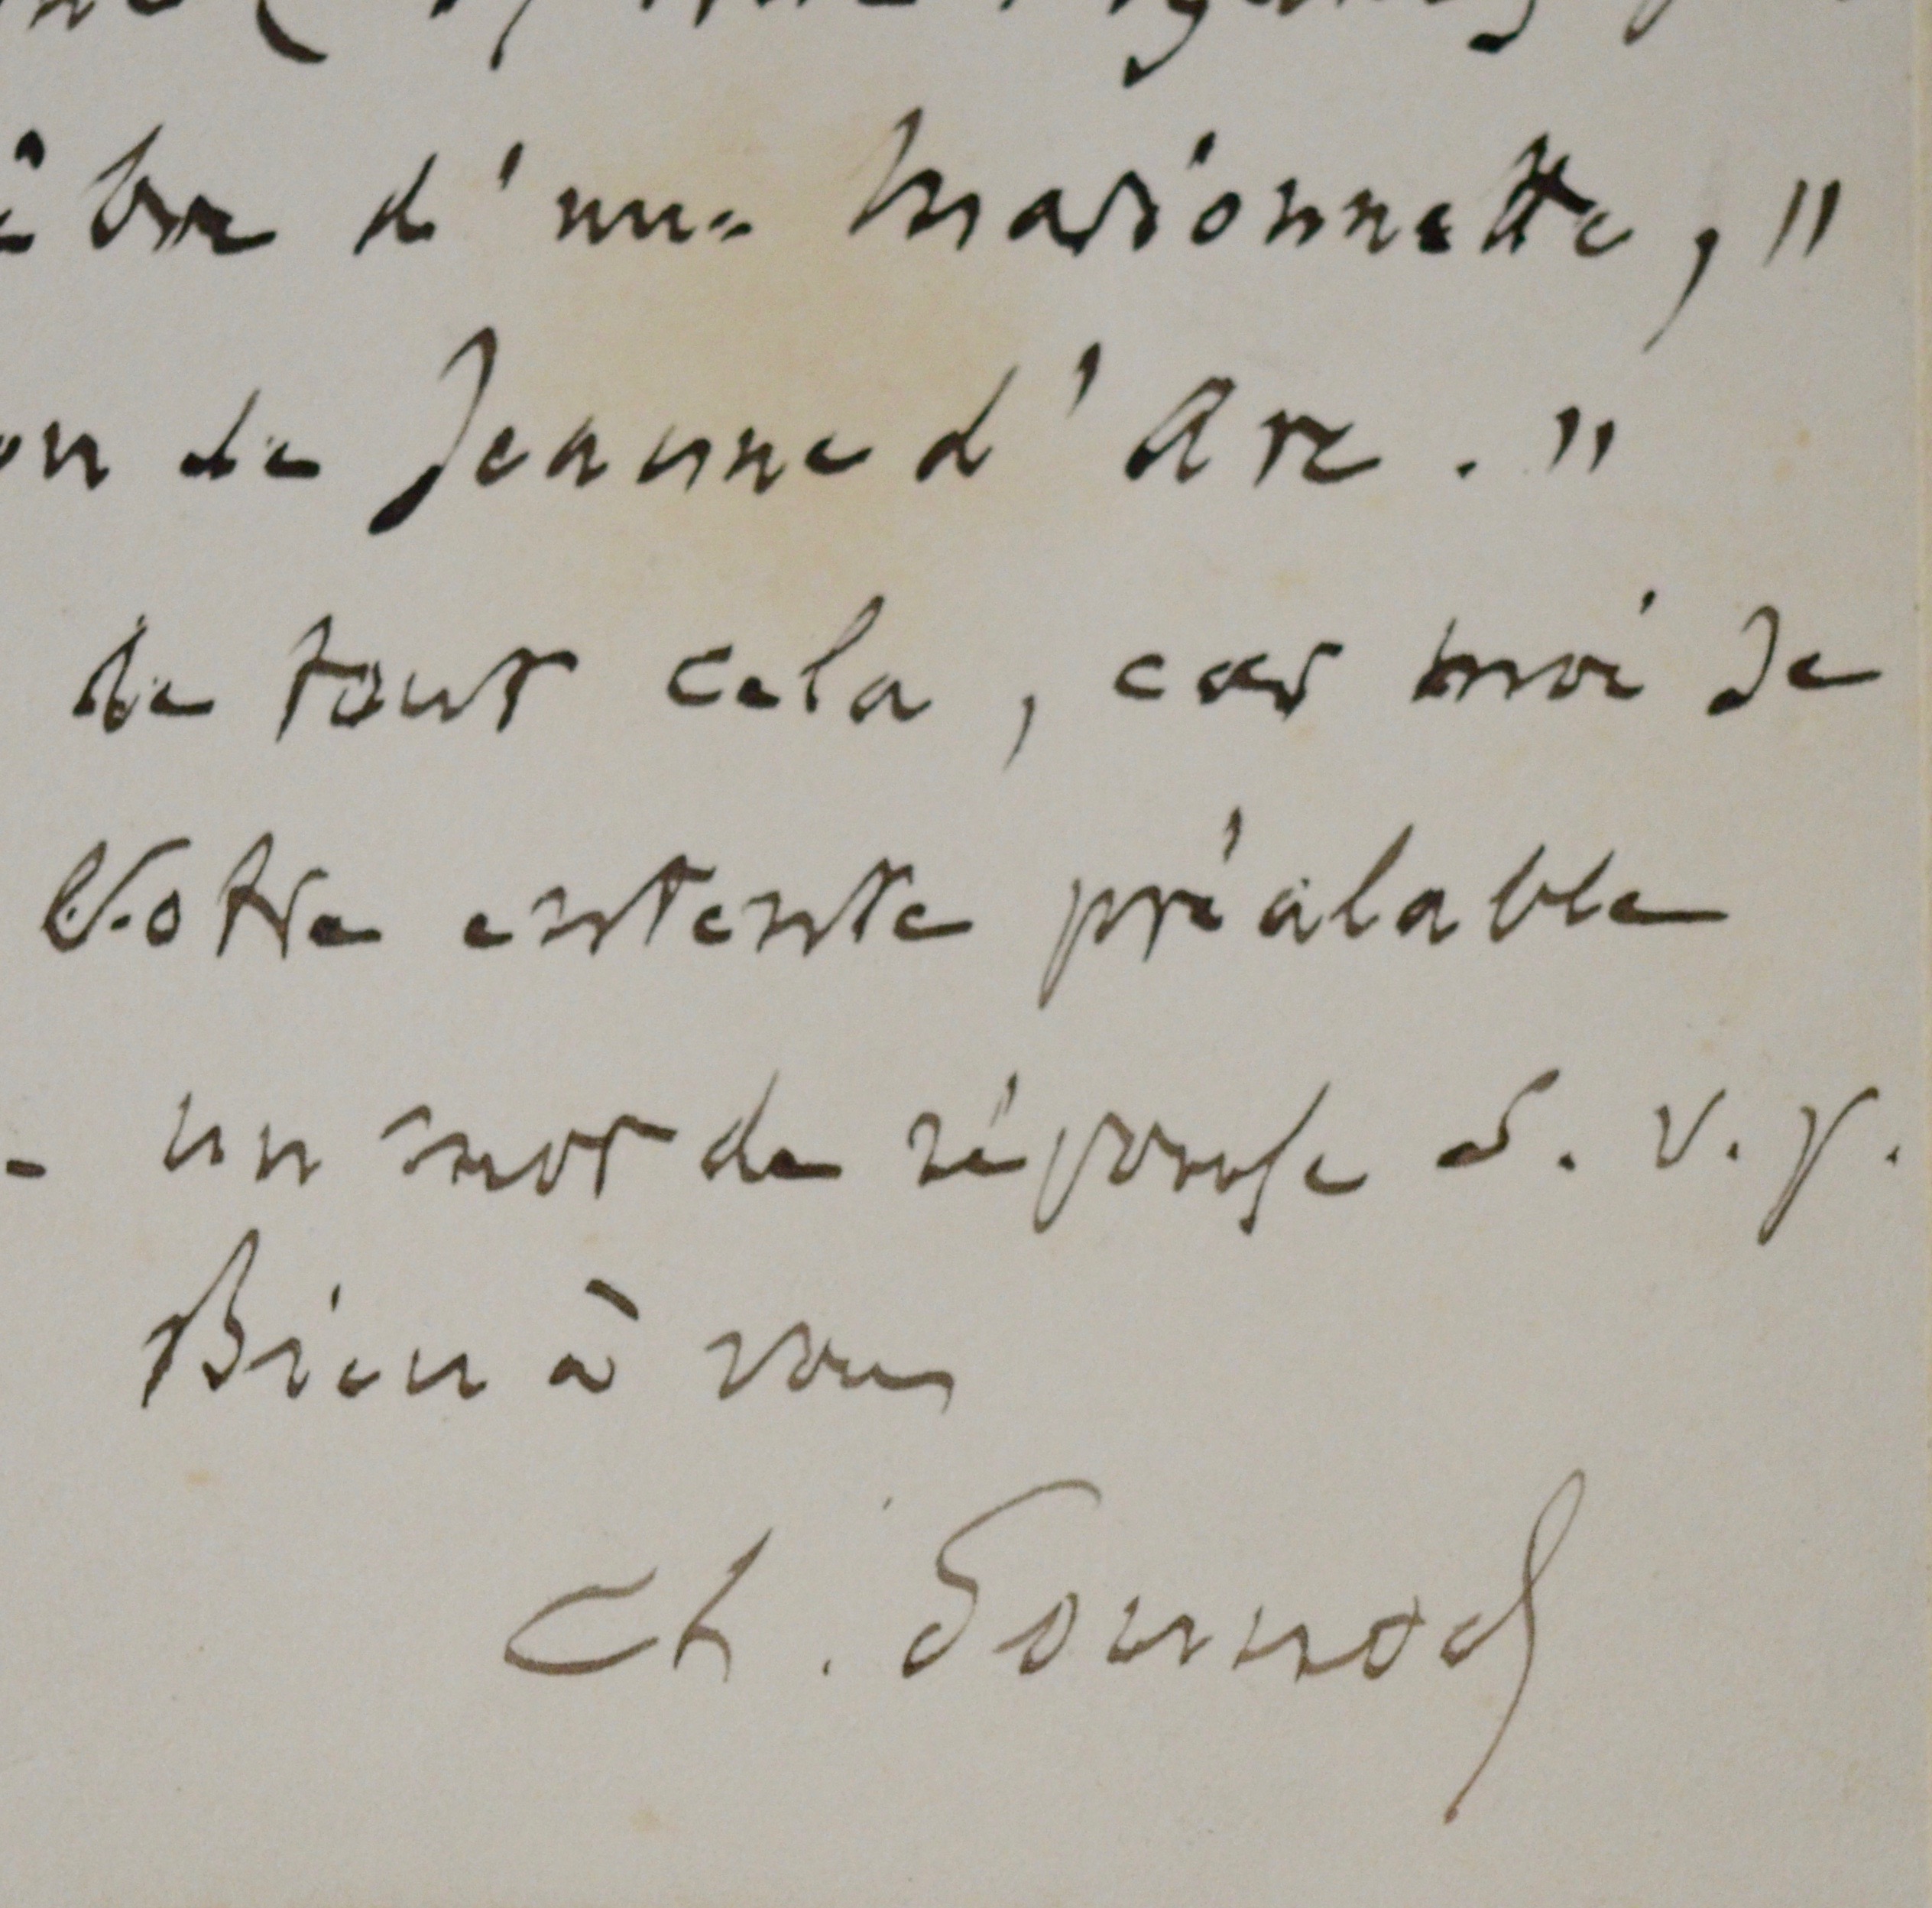 èbre d'une Marionnette, "
on de Jeanne d'Arc. "
de tout cela, car moi je
Votre entente préalable
- un mot de réponse S. v. p.
Bien à vous
Ch. Gounod